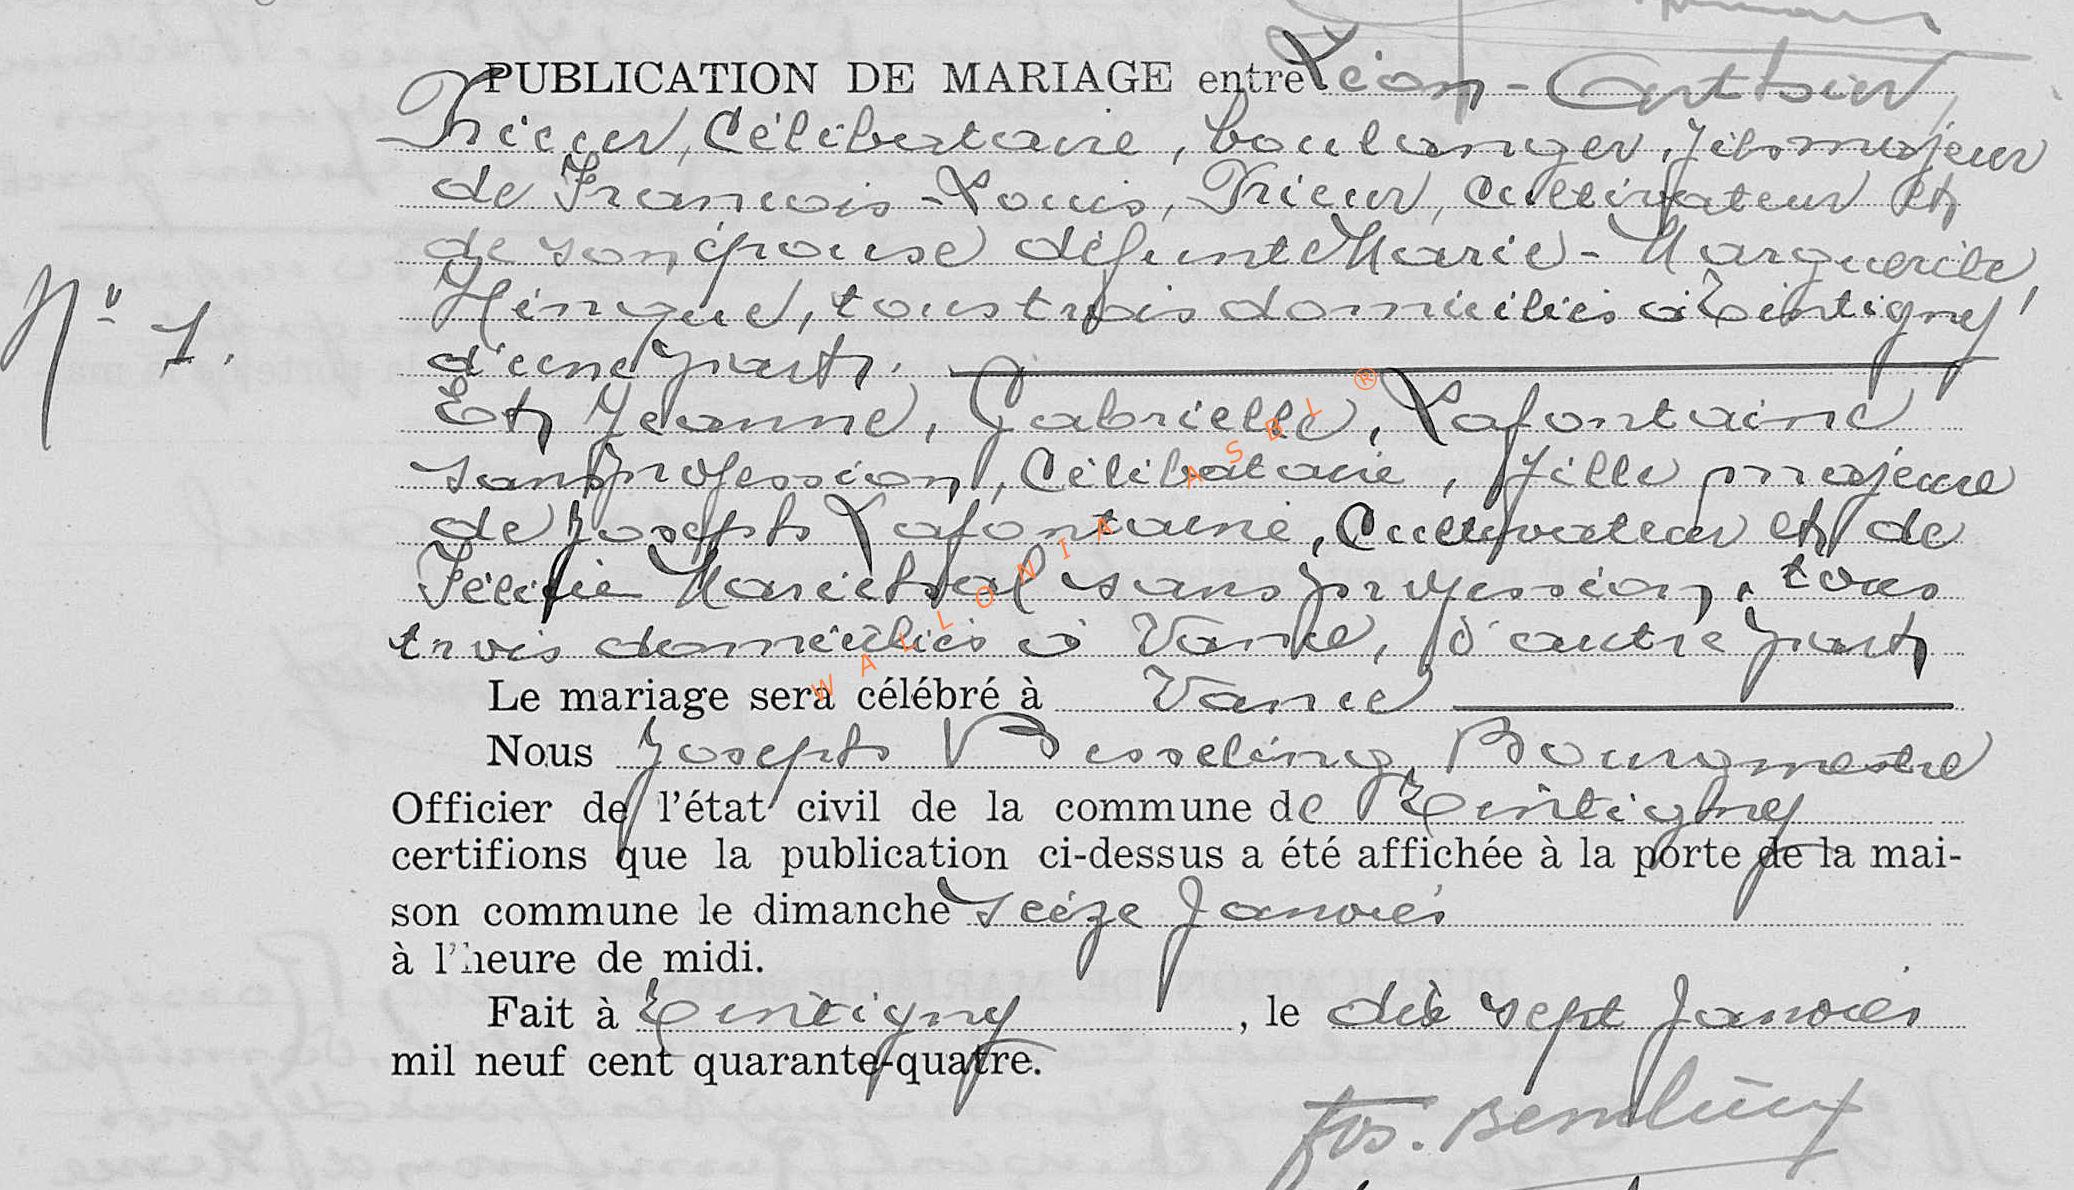 PUBLICATION DE MARIAGE entre Léon-Arthur,
Tricur, Célibataire, boulanger, fils majeur
de François-Louis, Tricur, Cultivateur Et
de son épouse défunte Marie-Marguerite
Hingue, tous trois domiciliés à Tintigny
N° 1.
d'une part.
Et Jeanne, Gabrielle, Lafontaine
sans profession, Célibataire, fille majeure
de Joseph Lafontaine, Cultivateur et de
Félicie Maréchal sans profession, tous
trois domiciliés à Vance, d'autre part
Le mariage sera célébré à Vance
Nous Joseph Besseling, Bourgmestre
Officier de l'état civil de la commune de Tintigny
certifions que la publication ci-dessus a été affichée à la porte de la mai-
son commune le dimanche seize Janvier
à l'heure de midi.
Fait à Tintigny, le dix sept Janvier
mil neuf cent quarante-quatre.
Jos.
WALLONIA ASBL ®